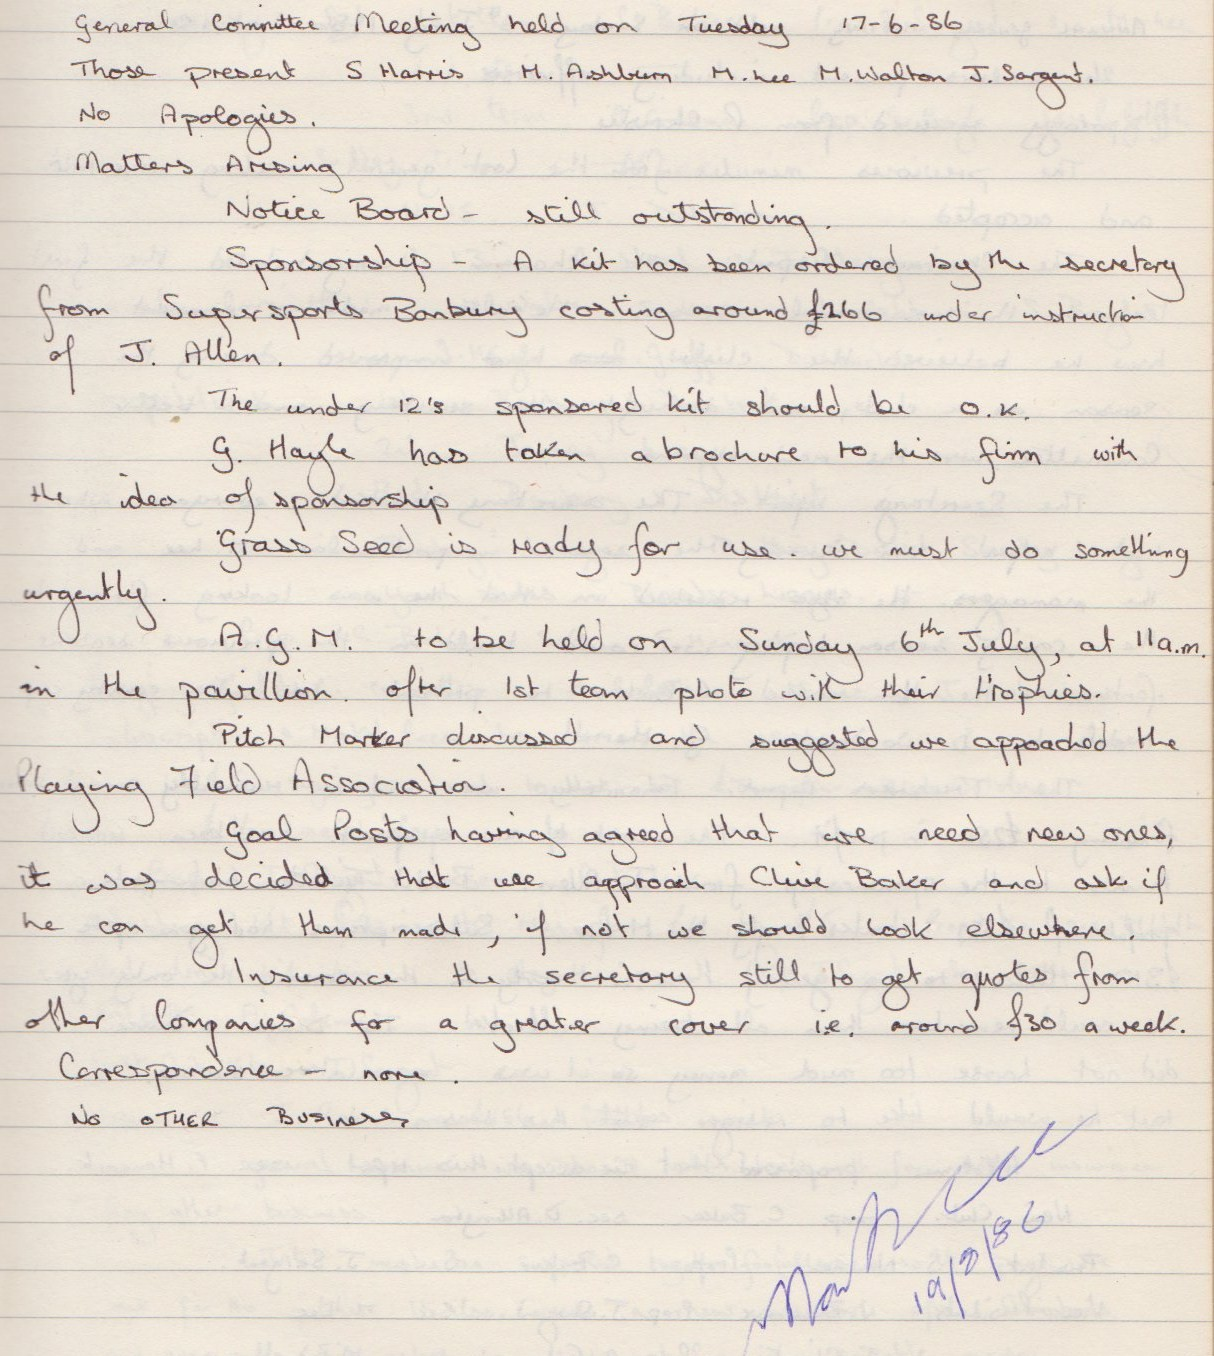 General Committee Meeting held on Tuesday 17-6-86
Those present S Harris M. Ashburn M. Lee M. Walton J. Sargent.
No Apologies.
Matters Arising
Notice Board - still outstanding.
Sponsorship - A kit has been ordered by the secretary
from Supersports Banbury costing around £266 under instruction
of J. Allen.
The under 12's sponsored kit should be o.k.
G. Hayle has taken a brochure to his firm with
the idea of sponsorship
Grass Seed is ready for use. we must do something
urgently.
A.G.M. to be held on Sunday 6th July, at 11a.m.
in the pavillion. after 1st team photo with their trophies.
Pitch Marker discussed and suggested we appoached the
Playing Field Association.
Goal Posts having agreed that we need new ones,
it was decided that we approach Clive Baker and ask if
he can get them made, if not we should look elsewhere.
Insurance the secretary still to get quotes from
other Companies for a greater cover i.e. around £30 a week.
Correspondence - none.
No OTHER Business